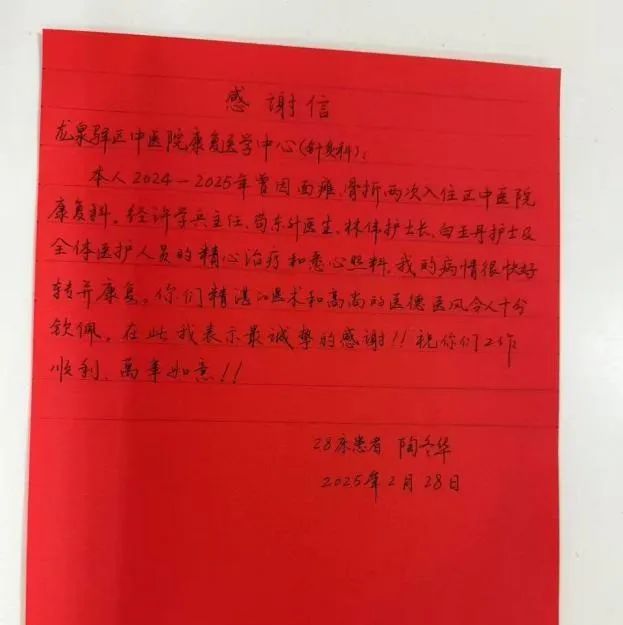 感謝信
龙泉驿区中医院康复医学中心(针灸科):
本人2024-2025年曾因面瘫、骨折,两次入住区中医院
康复科。经许学兵主任、苟东升医生、林伟护士长、白玉丹护士及
全体医护人员的精心治疗和悉心照料,我的病情很快好
转并康复。你们精湛的医术和高尚的医德医风令人十分
钦佩。在此我表示最诚挚的感谢!!祝你们工作
顺利、万事如意!!
28床患者 陶冬华
2025年2月28日